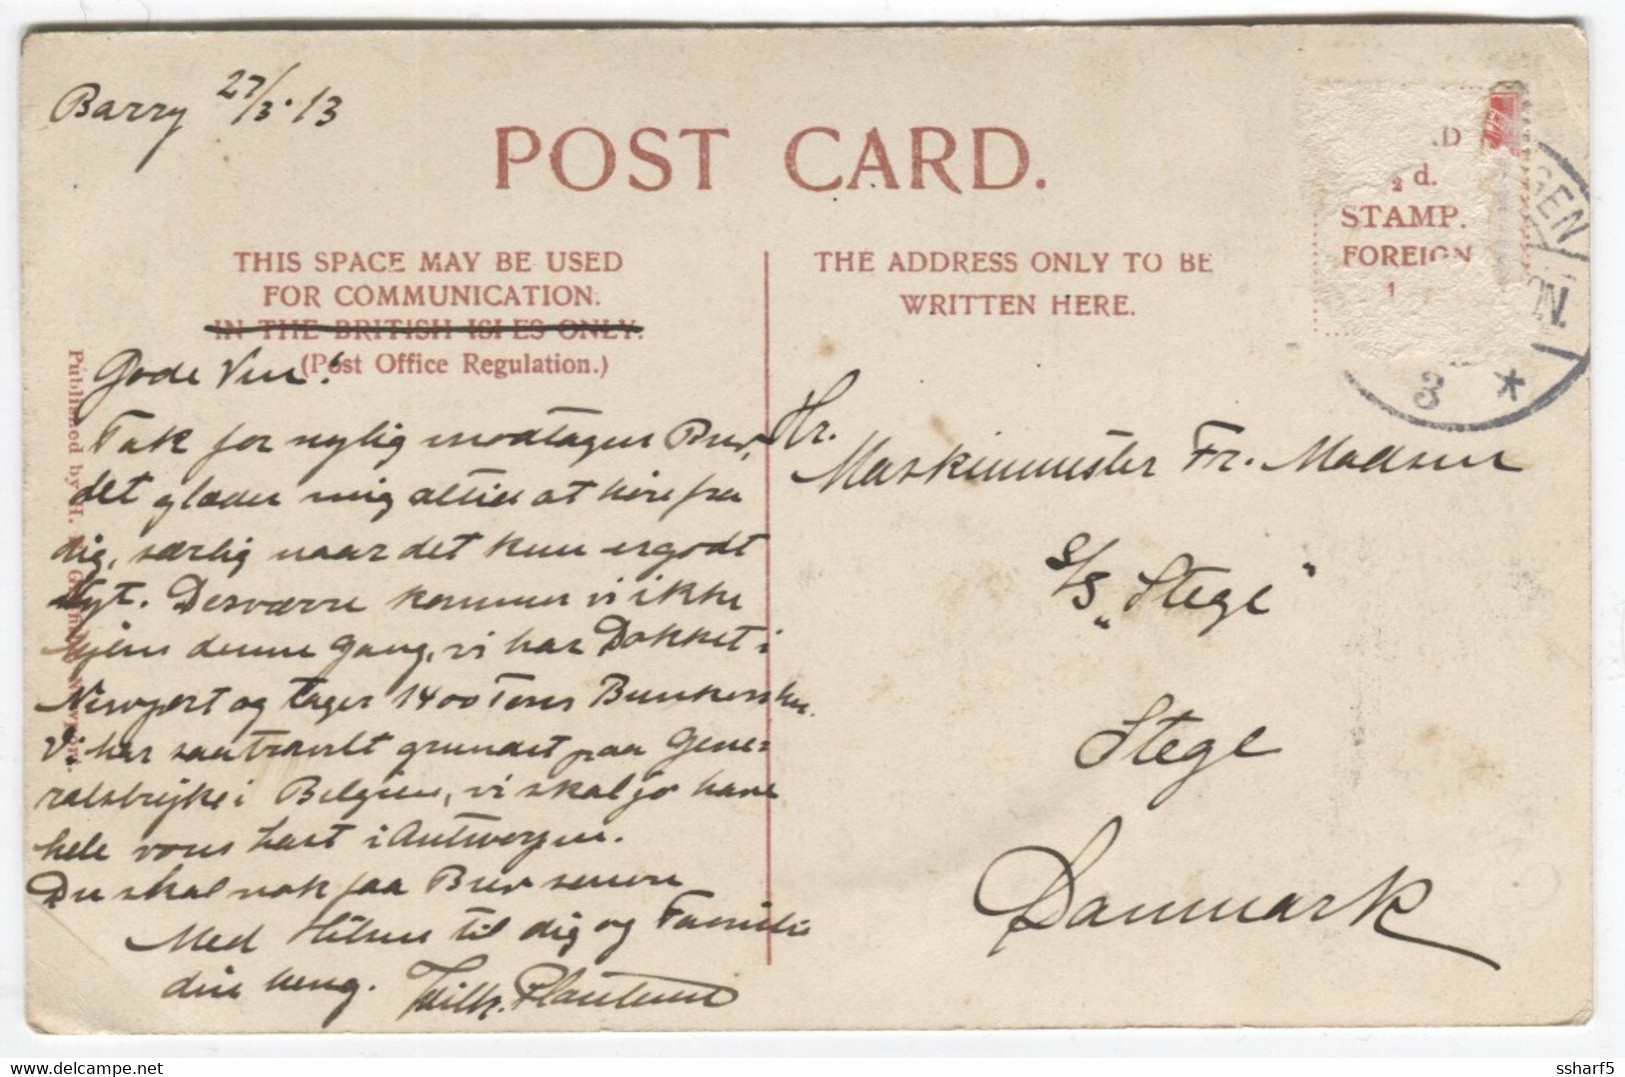 Barry 27/3.13
POST CARD.
THIS SPACE MAY BE USED
FOR COMMUNICATION.
IN THE BRITISH ISLES ONLY.
(Post Office Regulation.)
THE ADDRESS ONLY TO BE
WRITTEN HERE.
D
½ d.
STAMP.
FOREIGN
1
GEN
ON.
3 *
Published by H. Newport.
Gode Ven!
Tak for nylig modtagen Brev,
det glæder mig altid at høre fra
dig, særlig naar det kun er godt
Nyt. Desværre kommer vi ikke
hjem denne Gang, vi har Dokket i
Newport og tager 1400 Tons Bunkers
Vi har saa travlt grundet paa Gene-
ralstrejke i Belgien, vi skal jo have
hele vores Last i Antwerpen.
Du skal nok faa Brev senere
Med Hilsen til dig og Familie
din heng. Wilh.
Hr.
Maskinmester Fr. Madsen
S/S "Stege"
Stege
Danmark
ssharf5
delcampe.net